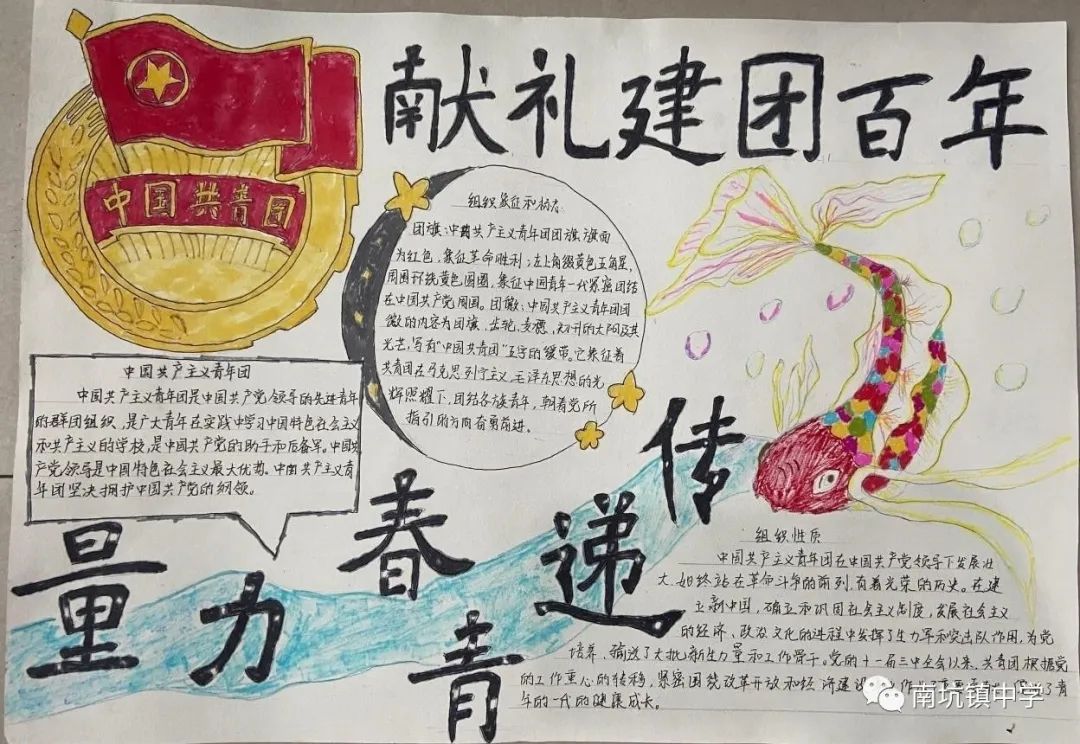 献礼建团百年
中国共青团
组织象征和标志
团旗:中国共产主义青年团团旗旗面
为红色,象征革命胜利;左上角缀黄色五角星,
周围环绕黄色圆圈,象征中国青年一代紧密团结
在中国共产党周围。团徽:中国共产主义青年团团
徽的内容为团旗、齿轮、麦穗、初升的太阳及其
光芒,写有“中国共青团”五字的绶带。它象征着
共青团在马克思列宁主义、毛泽东思想的光
辉照耀下,团结各族青年,朝着党所
指引的方向奋勇前进。
中国共产主义青年团
中国共产主义青年团是中国共产党领导的先进青年
的群团组织,是广大青年在实践中学习中国特色社会主义
和共产主义的学校,是中国共产党的助手和后备军。中国共
产党领导是中国特色社会主义最大优势。中国共产主义青
年团坚决拥护中国共产党的纲领。
传
递
青
春
力
量
组织性质
中国共产主义青年团在中国共产党领导下发展壮
大,始终站在革命斗争的前列,有着光荣的历史。在建
立新中国,确立和巩固社会主义制度,发展社会主义
的经济、政治文化的进程中发挥了生力军和突击队作用,为党
培养、输送了大批新生力量和工作骨干。党的十一届三中全会以来,共青团根据党
的工作重心的转移,紧密围绕改革开放和经济建设
了青
年的一代的健康成长。
南坑镇中学